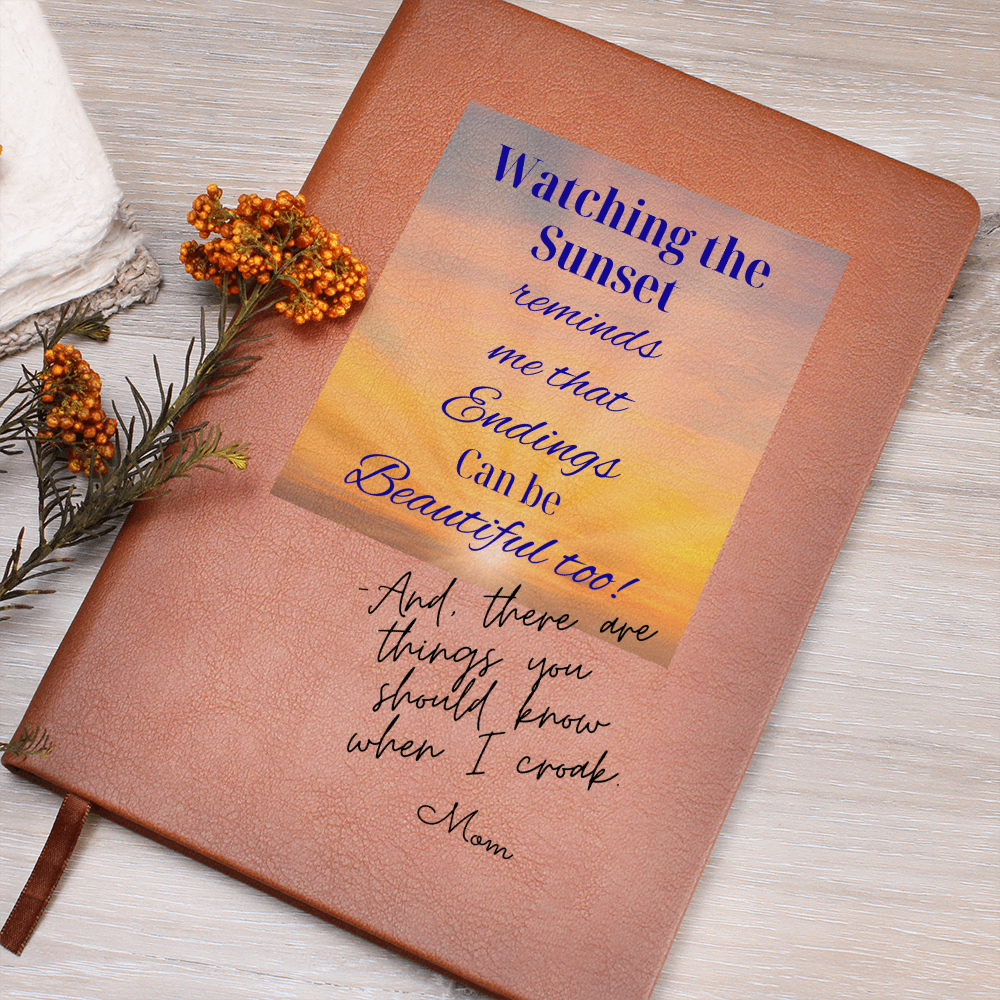 Watching the
Sunset
reminds
me that
Endings
Can be
Beautiful too!
-And, there are
things you
should know
when I croak.
Mom